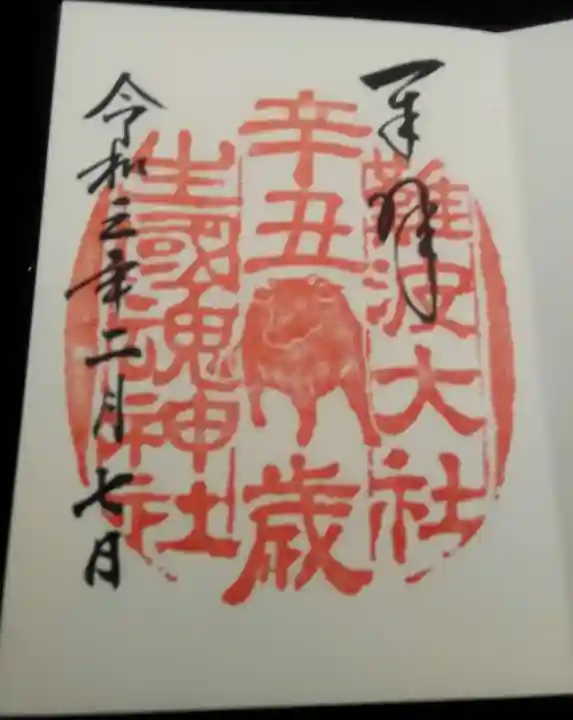 奉拝
難波大社
辛丑歳
生國魂神社
令和三年二月七日